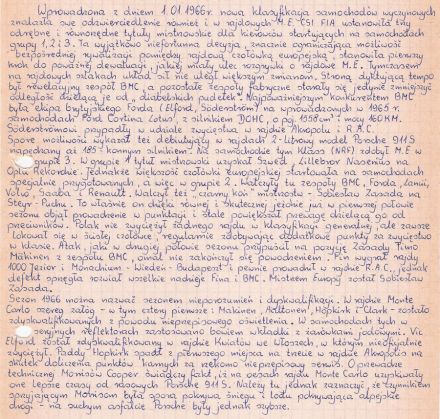 Wprowadzona z dniem 1.01.1966r. nowa klasyfikacja samochodów wyczynowych
znalazła swe odzwierciedlenie również i w rajdowych M.E. CSI FIA ustanowiła trzy
odrębne i równorzędne tytuły mistrzowskie dla kierowców startujących na samochodach
grupy 1, 2 i 3. Ta wyjątkowo niefortunna decyzja, znacznie ograniczająca możliwość
bezpośredniej rywalizacji pomiędzy rajdową czołówką europejską, stanowiła pierwszy
krok do poważnej dewaluacji, jakiej miały ulec rozgrywki o rajdowe M.E. Tymczasem
na rajdowych szlakach układ sił nie uległ większym zmianom. Stroną dyktującą tempo
był rewelacyjny zespół BMC, a pozostałe zespoły fabryczne starały się jedynie zmniejszyć
odległość dzielącą je od "diabelskich pudełek". Najpoważniejszym konkurentem BMC
była ekipa brytyjskiego Forda (Elford, Söderström) na wprowadzonych w 1965r.
samochodach Ford Cortina Lotus, z silnikiem DOHC, o poj. 1558 cm³ i mocy 160 KM.
Söderströmowi przypadły w udziale zwycięstwa w rajdzie Akropolu i R.A.C.
Spore możliwości wykazał też debiutujący w rajdach 2-litrowy model Porsche 911 S
napędzany aż 185 konnym silnikiem. Na samochodzie tym Klass (NRF) zdobył M.E. w
grupie 3. W grupie 1 tytuł mistrzowski uzyskał Szwed, Lillebror Nasenius na
Oplu Rekordzie. Jednakże większość czołówki europejskiej startowała na samochodach
specjalnie przygotowanych, a więc w grupie 2. Walczyły tu zespoły BMC, Forda, Lancii,
Volvo, Saaba i Renault. Walczył też "czarny koń" mistrzostw - Sobiesław Zasada na
Steyr-Puchu. To właśnie on dzięki równej i skutecznej jeździe już w pierwszej połowie
sezonu objął prowadzenie w punktacji i stale powiększał przewagę dzielącą go od
przeciwników. Polak nie zwyciężył żadnego rajdu w klasyfikacji generalnej, ale zawsze
lokował się w ścisłej czołówce, regularnie zdobywając dodatkowe punkty za zwycięstwo
w klasie. Atak, jaki w drugiej połowie sezonu przypuścił na pozycję Zasady Timo
Mäkinen z zespołu BMC, omal nie zakończył się powodzeniem. Fin wygrał rajdy
1000 Jezior i Monachium-Wiedeń-Budapeszt i pewnie prowadził w rajdzie R.A.C., jednak
defekt sprzętu rozwiał wszelkie nadzieje Fina i BMC. Mistrzem Europy został Sobiesław
Zasada.
Sezon 1966 można nazwać sezonem nieporozumień i dyskwalifikacji. W Rajdzie Monte
Carlo szereg załóg - w tym cztery pierwsze: Makinen, Aaltonen, Hopkirk i Clark - zostało
zdyskwalifikowanych z powodu nieprzepisowego oświetlenia. W samochodach tych w
seryjnych reflektorach zastosowano bowiem wkładki z żarówkami jodowymi. Vic
Elford został zdyskwalifikowany w rajdzie Kwiatów we Włoszech, w którym nieoficjalnie
zwyciężył. Paddy Hopkirk spadł z pierwszego miejsca na trzecie w rajdzie Akropolis na
skutek doliczenia punktów karnych za rzekomo nieprzepisowy serwis. O przewadze
technicznej Morrisów Cooper świadczy fakt, iż na oesach rajdu Monte Carlo uzyskiwały
one lepsze czasy od rasowych Porsche 911 S. Należy tu jednak zaznaczyć, że czynnikiem
sprzyjającym Morrisom była spora pokrywa śniegu i lodu pokrywająca alpejskie
drogi - na suchym asfalcie Porsche były jednak szybsze.